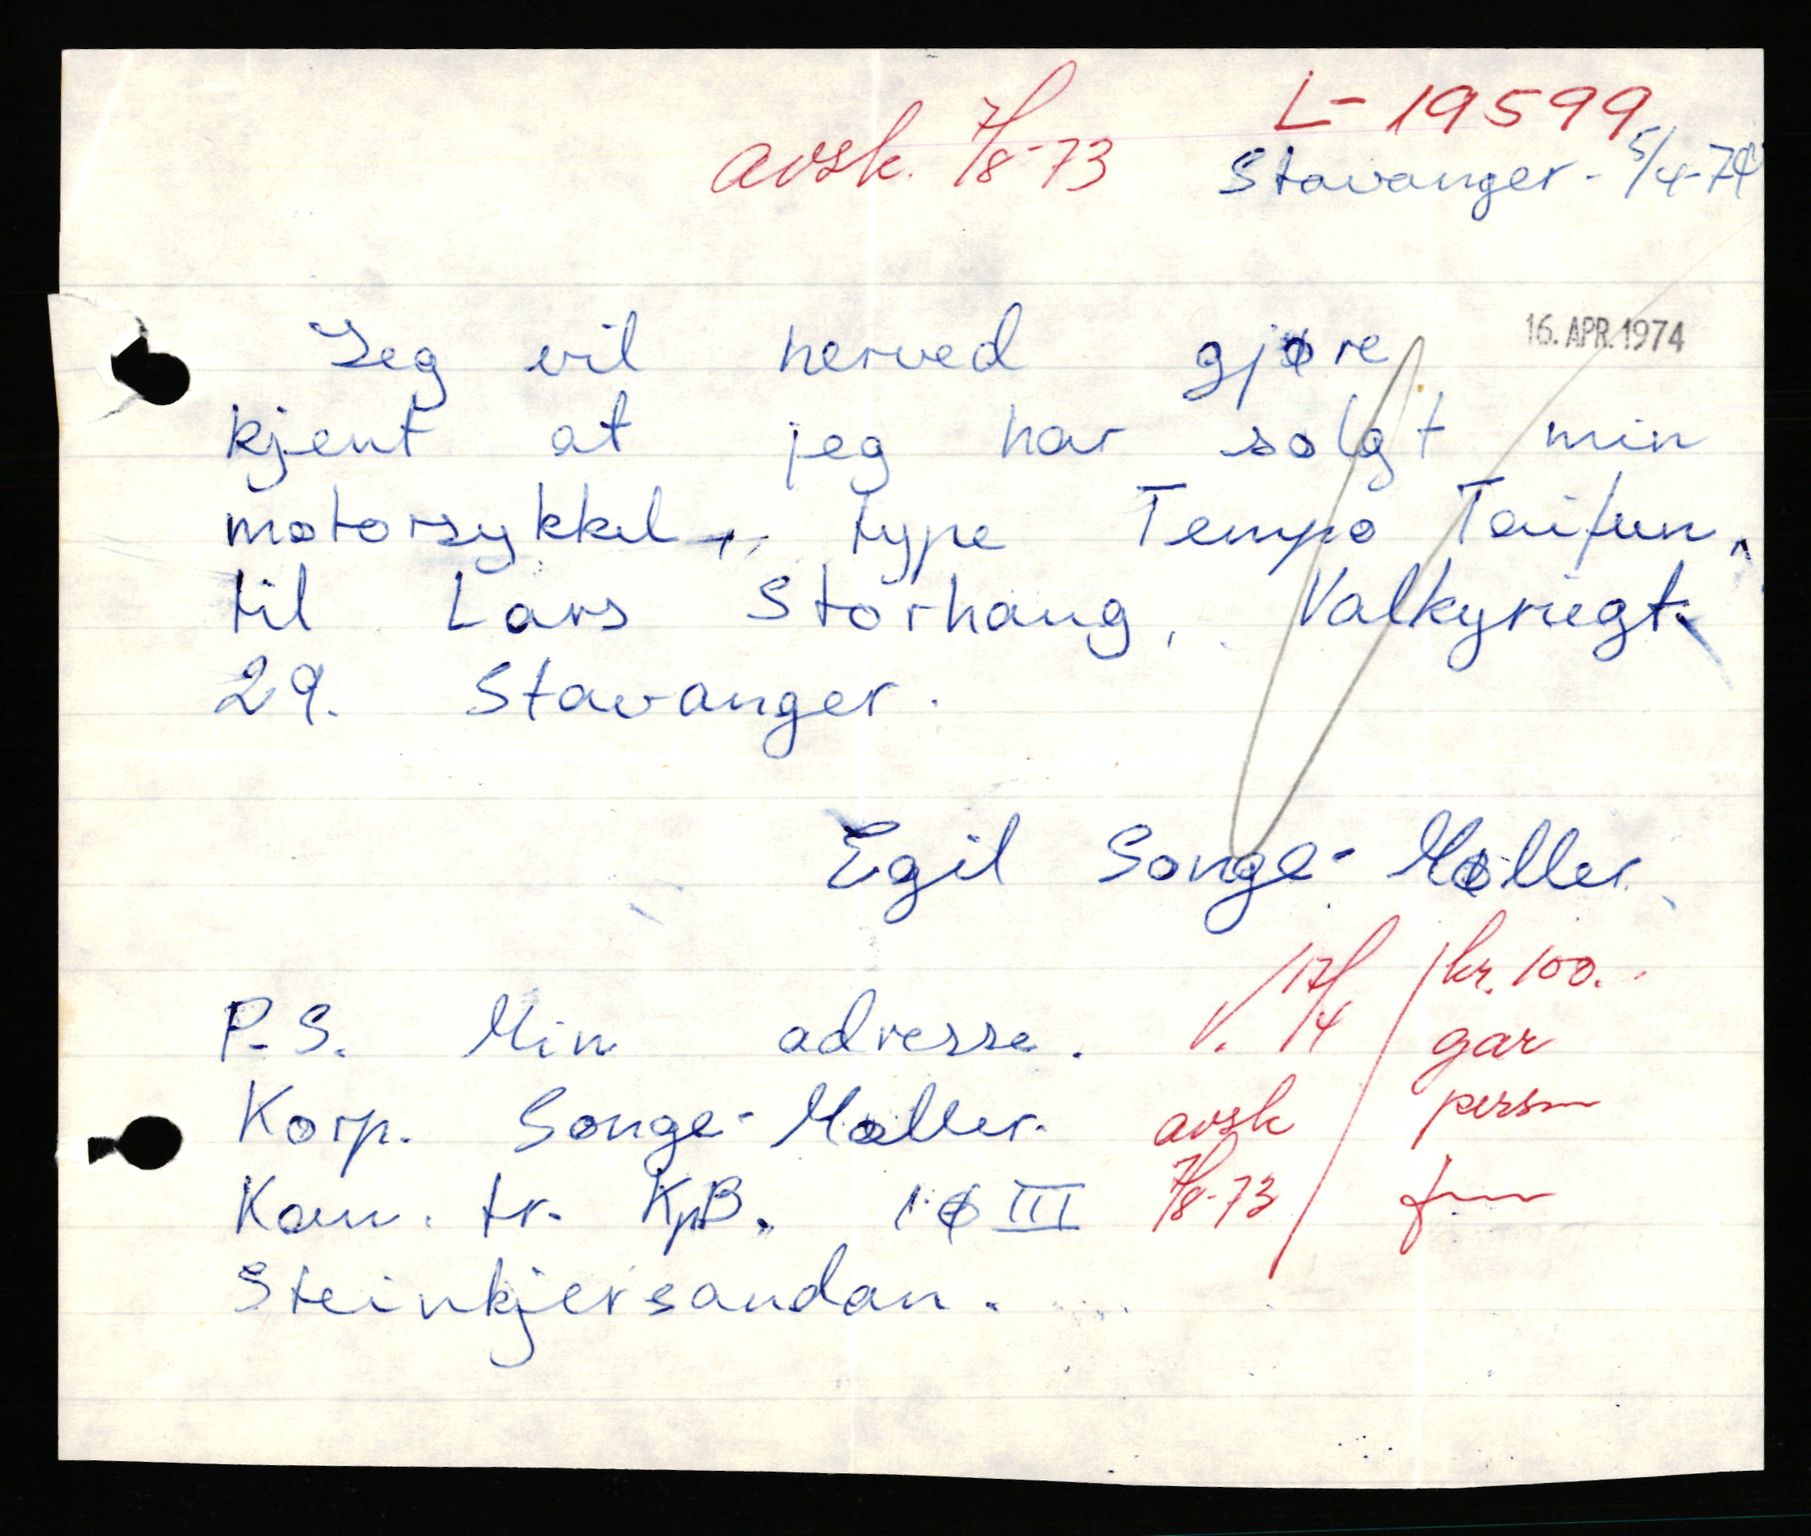 L-19599
avsk. 7/8-73
Stavanger - 5/4-74
16. APR. 1974
Jeg vil herved gjøre
kjent at jeg har solgt min
motorsykkel, type Tempo Taifun,
til Lars Storhaug, Valkyriegt.
29. Stavanger.
Egil Songe-Møller.
P.S. Min adresse.
Korp. Songe-Møller.
Kan. tr. KpB. IØ III
Steinkjersandan.
V. 17/4
avsk
7/8-73
kr. 100.
gar
person